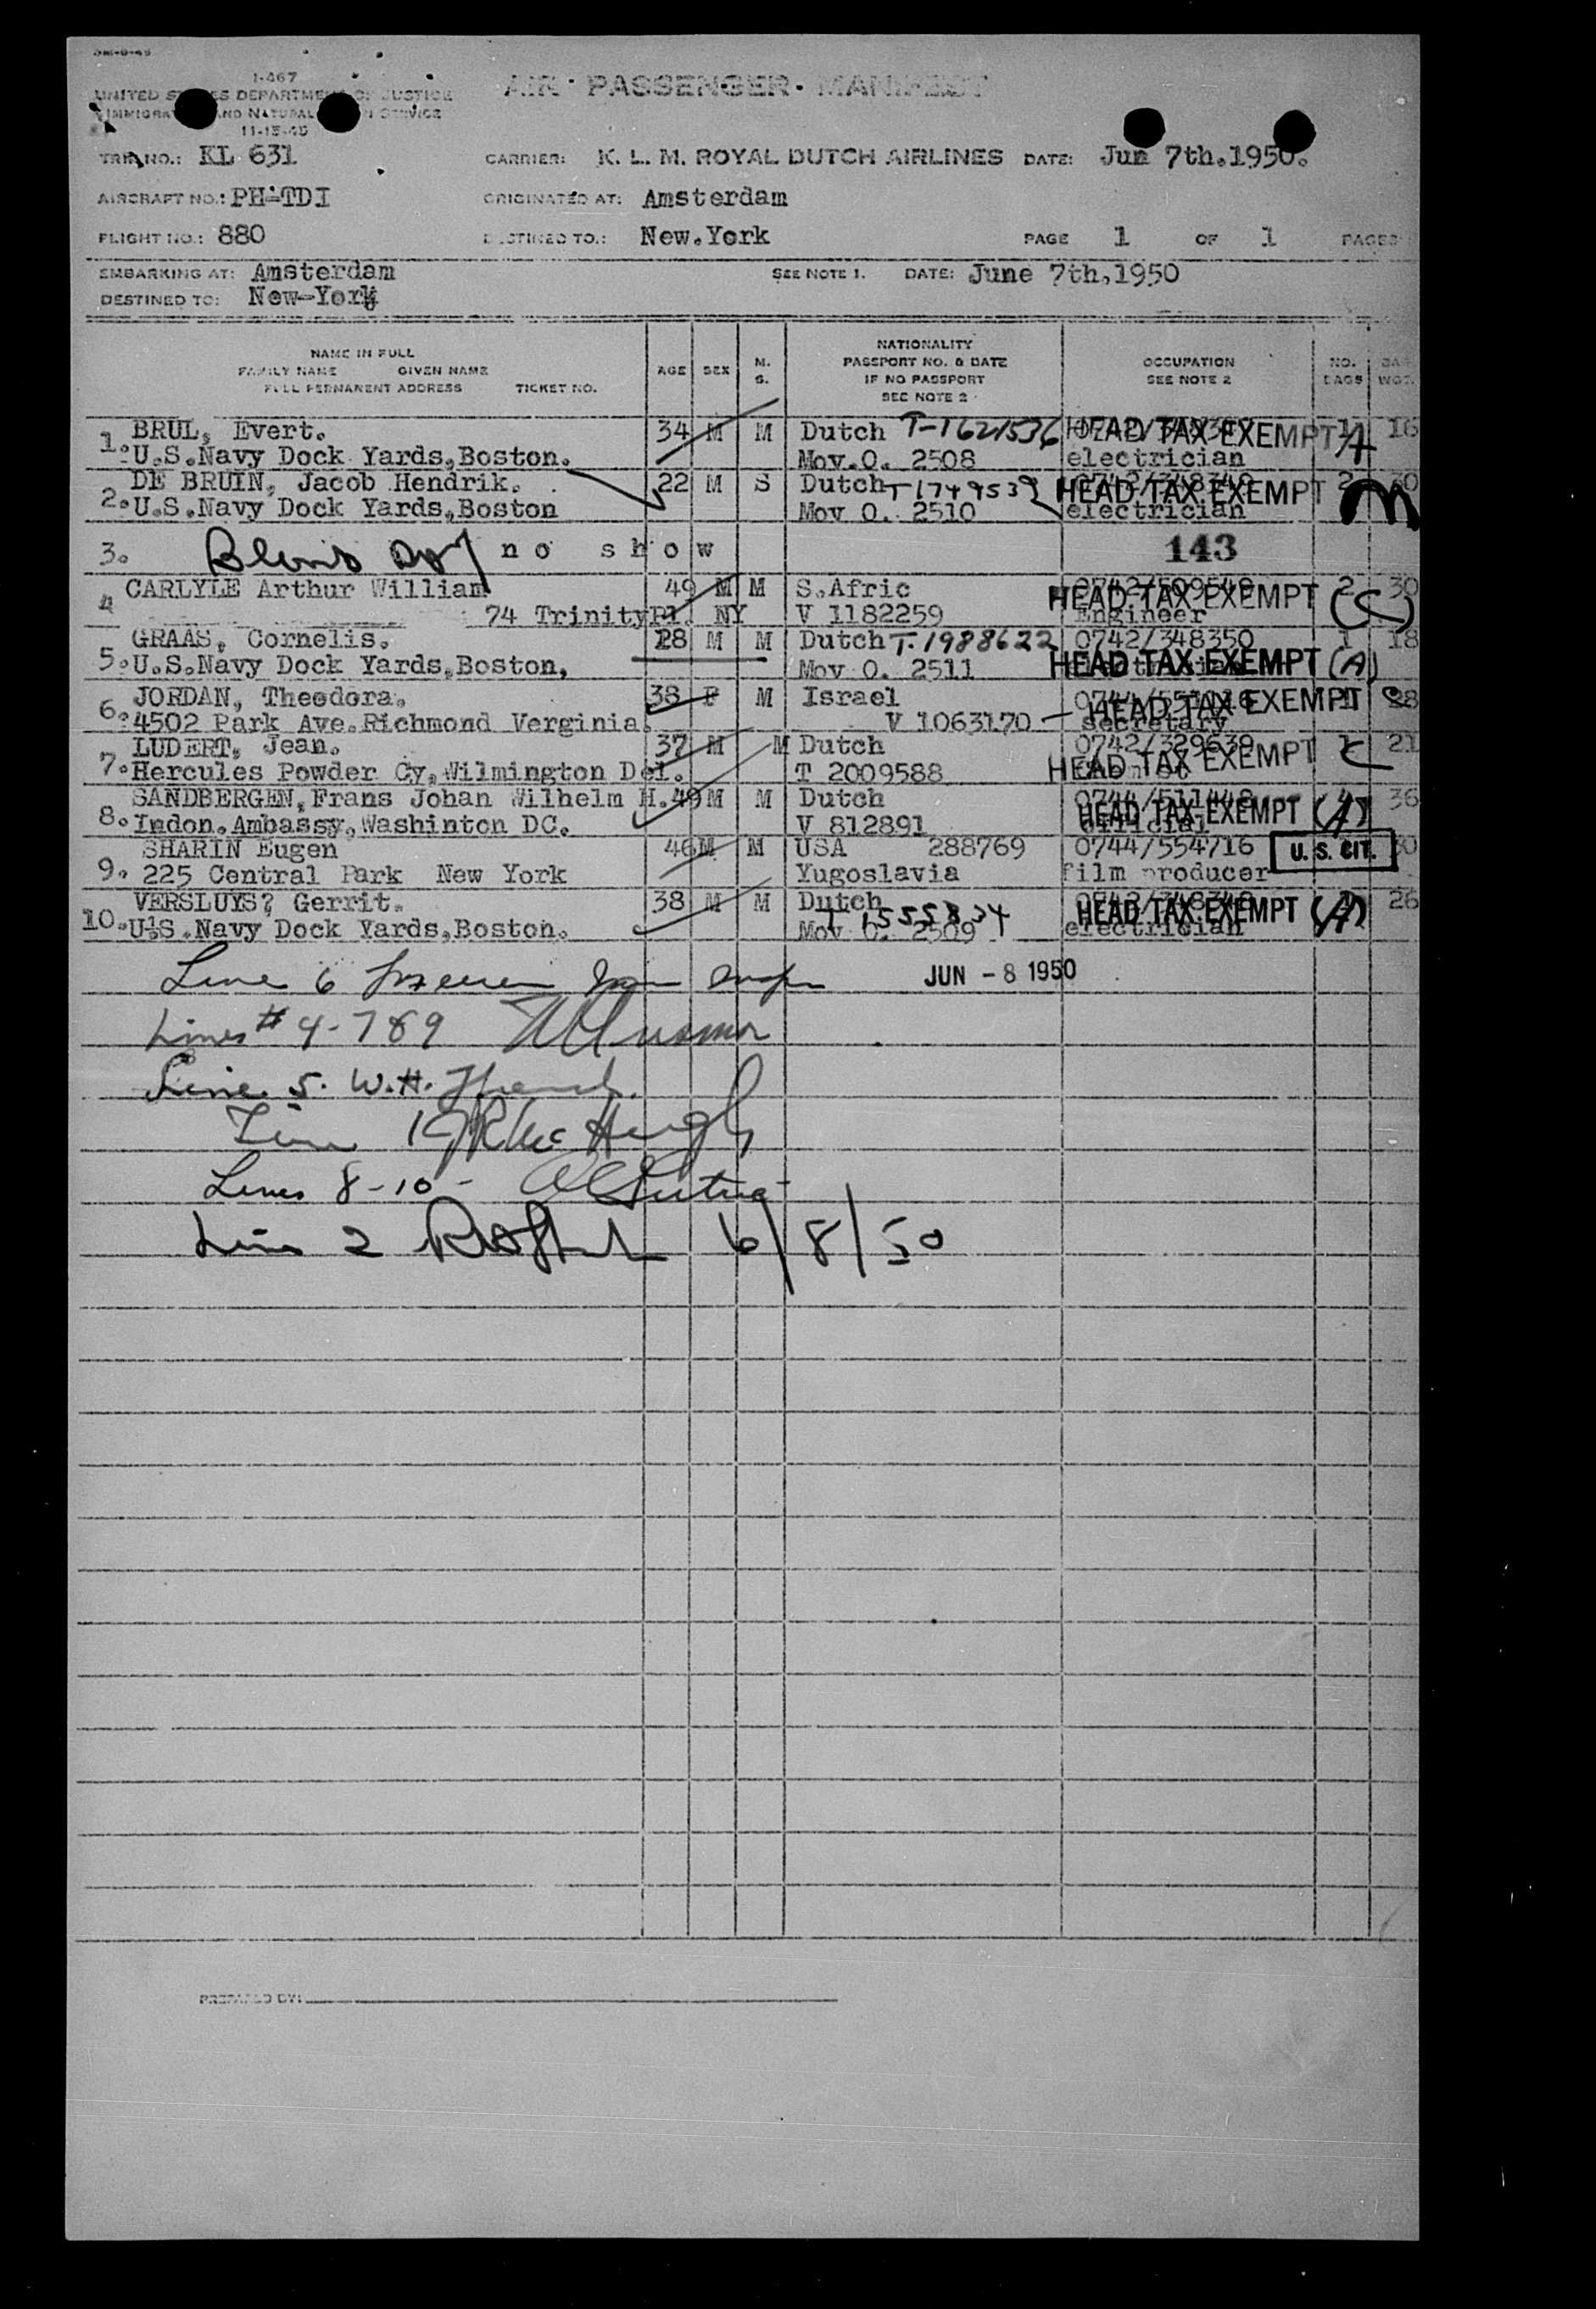 I-467
UNITED STATES DEPARTMENT OF JUSTICE
IMMIGRATION AND NATURALIZATION SERVICE
11-15-45
AIR PASSENGER MANIFEST
TRIP NO.: KL 631 CARRIER: K. L. M. ROYAL DUTCH AIRLINES DATE: Jun 7th.1950.
AIRCRAFT NO.: PH-TDI ORIGINATED AT: Amsterdam
FLIGHT NO.: 880 DESTINED TO.: New.York PAGE 1 OF 1 PAGES
EMBARKING AT: Amsterdam SEE NOTE 1. DATE: June 7th,1950
DESTINED TO: New-York
NAME IN FULL
FAMILY NAME GIVEN NAME
FULL PERMANENT ADDRESS TICKET NO.
AGE SEX M. S.
NATIONALITY
PASSPORT NO. & DATE
IF NO PASSPORT
SEE NOTE 2
OCCUPATION
SEE NOTE 2
NO. BAGS
BAG. WGT.
1. BRUL, Evert. 34 M M Dutch T-1621536 HEAD TAX EXEMPT A 16
U.S.Navy Dock Yards,Boston. Mov.O. 2508 electrician
2. DE BRUIN, Jacob Hendrik. 22 M S Dutch T1749539 HEAD TAX EXEMPT 2 30
U.S.Navy Dock Yards,Boston Mov O. 2510 electrician
3. no show 143
4 CARLYLE Arthur William 49 M M S.Afric 0742/509549 HEAD TAX EXEMPT 2 30 (C)
74 Trinity Pl. NY V 1182259 Engineer
5. GRAAS, Cornelis. 28 M M Dutch T.1988622 0742/348350 1 18
U.S.Navy Dock Yards,Boston, Mov O. 2511 HEAD TAX EXEMPT (A)
6. JORDAN, Theodora. 38 F M Israel HEAD TAX EXEMPT 28
4502 Park Ave.Richmond Verginia. V 1063170 secretary
7. LUDERT, Jean. 37 M M Dutch 0742/329639 HEAD TAX EXEMPT 1 21 C
Hercules Powder Cy,Wilmington Del. T 2009588
8. SANDBERGEN,Frans Johan Wilhelm H. 49 M M Dutch HEAD TAX EXEMPT (A) 36
Indon.Ambassy,Washinton DC. V 812891 official
9. SHARIN Eugen 46 M M USA 288769 0744/554716 U. S. CIT. 30
225 Central Park New York Yugoslavia film producer
10. VERSLUYS? Gerrit. 38 M M Dutch T 1555834 HEAD TAX EXEMPT (A) 26
U.S.Navy Dock Yards,Boston. Mov O. 2509 electrician
Line 6 JUN - 8 1950
Lines # 4-789
Line 5. W.H.
Line 1
Lines 8-10-
Line 2 6/8/50
PREPARED BY: